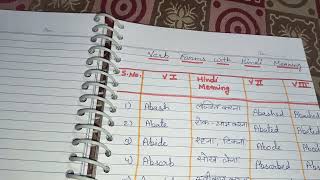 Verb Forms with Hindi Meaning
S.No. V I Hindi Meaning V II V III
1) Abash लज्जित करना Abashed
2) Abate रोक-थाम करना Abated
3) Abide रहना, टिकना Abode Abode
4) Absorb सोख लेना Absorbed